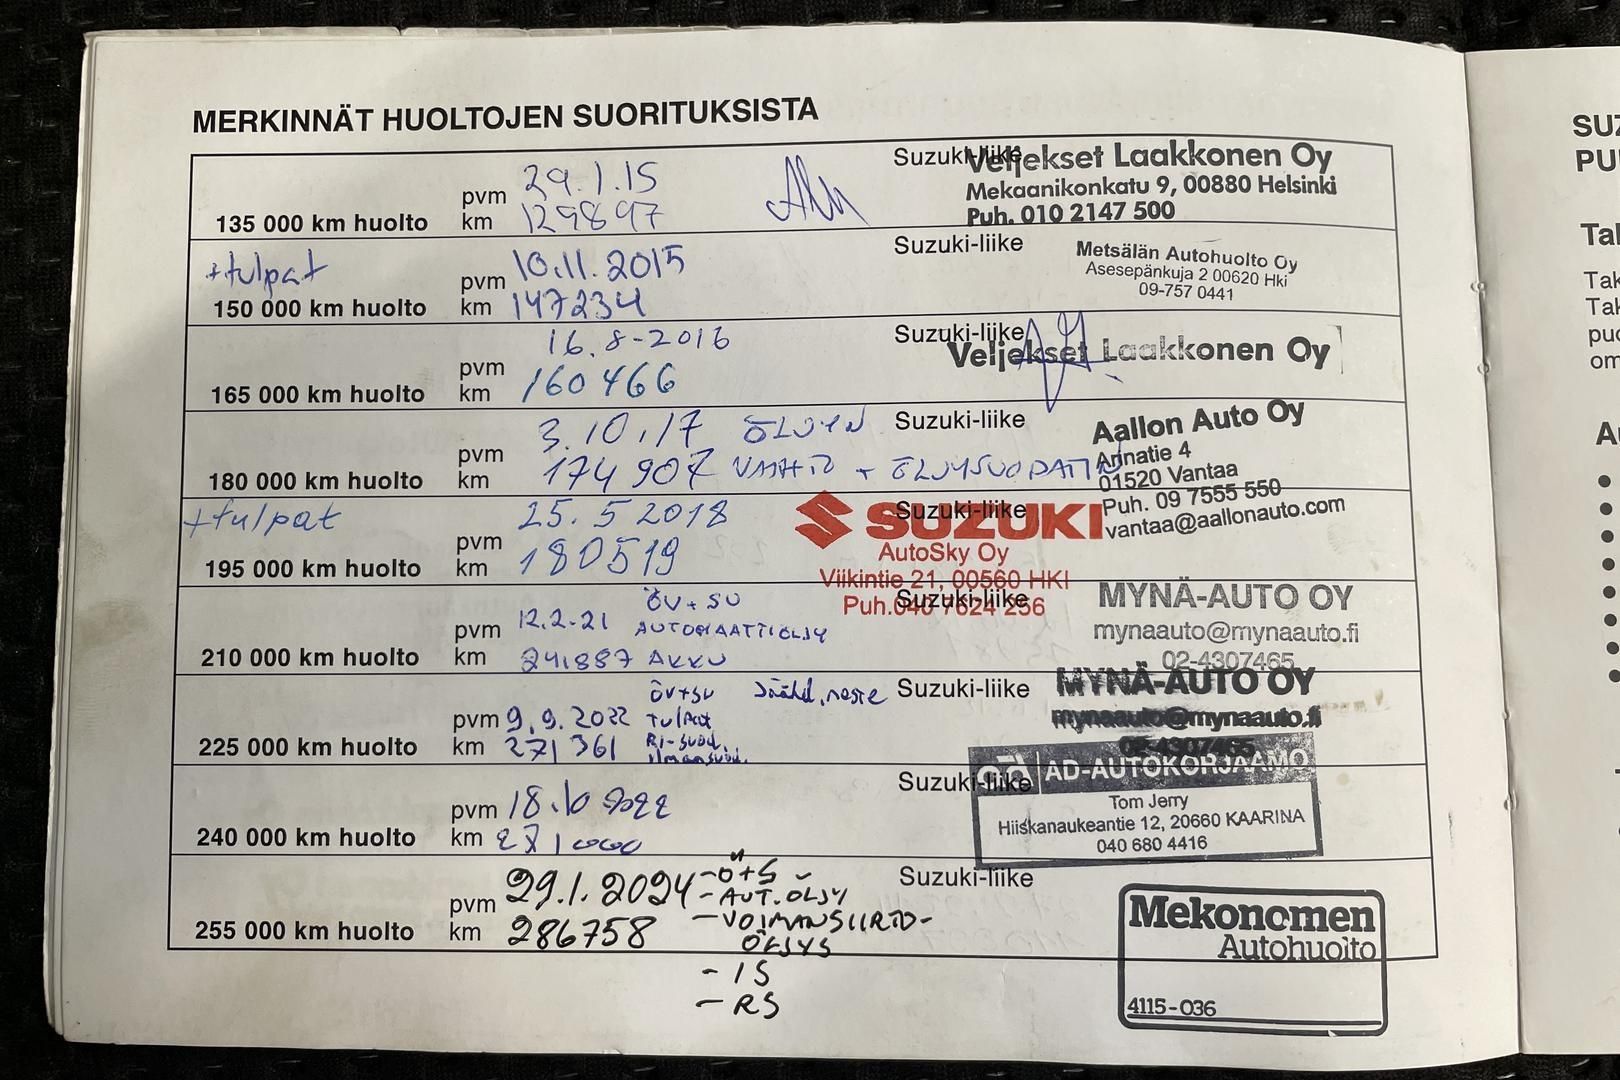 MERKINNÄT HUOLTOJEN SUORITUKSISTA
135 000 km huolto
pvm 29.1.15
km 129897
Suzuki-liike
Veljekset Laakkonen Oy
Mekaanikonkatu 9, 00880 Helsinki
Puh. 010 2147 500
+tulpat
150 000 km huolto
pvm 10.11.2015
km 147234
Suzuki-liike
Metsälän Autohuolto Oy
Asesepänkuja 2 00620 Hki
09-757 0441
165 000 km huolto
pvm 16.8-2016
km 160466
Suzuki-liike
Veljekset Laakkonen Oy
180 000 km huolto
pvm 3.10.17 ÖLJYN
km 174907 VAIHTO + ÖLJYSUODATIN
Suzuki-liike
Aallon Auto Oy
Annatie 4
01520 Vantaa
Puh. 09 7555 550
vantaa@aallonauto.com
+tulpat
195 000 km huolto
pvm 25.5 2018
km 180519
Suzuki-liike
SUZUKI
AutoSky Oy
Viikintie 21, 00560 HKI
Puh.040 7624 256
210 000 km huolto
ÖV+SU
pvm 12.2-21 AUTOMAATTIÖLJY
km 241887 AKKU
Suzuki-liike
MYNÄ-AUTO OY
mynaauto@mynaauto.fi
02-4307465
225 000 km huolto
öv+su Jäähd.neste
pvm 9.9.2022 Tulpat
km 271361 Ri-suod.
ilmansuod.
Suzuki-liike
MYNÄ-AUTO OY
mynaauto@mynaauto.fi
02-4307465
240 000 km huolto
pvm 18.10 2022
km 271000
Suzuki-liike
ad AD-AUTOKORJAAMO
Tom Jerry
Hiiskanaukeantie 12, 20660 KAARINA
040 680 4416
255 000 km huolto
pvm 29.1.2024
km 286758
- Ö+S
- AUT.ÖLJY
- VOIMANSIIRTO-
ÖLJYS
- IS
- RS
Suzuki-liike
Mekonomen
Autohuolto
4115-036
SUZ
PU
Tak
Tak
puo
om